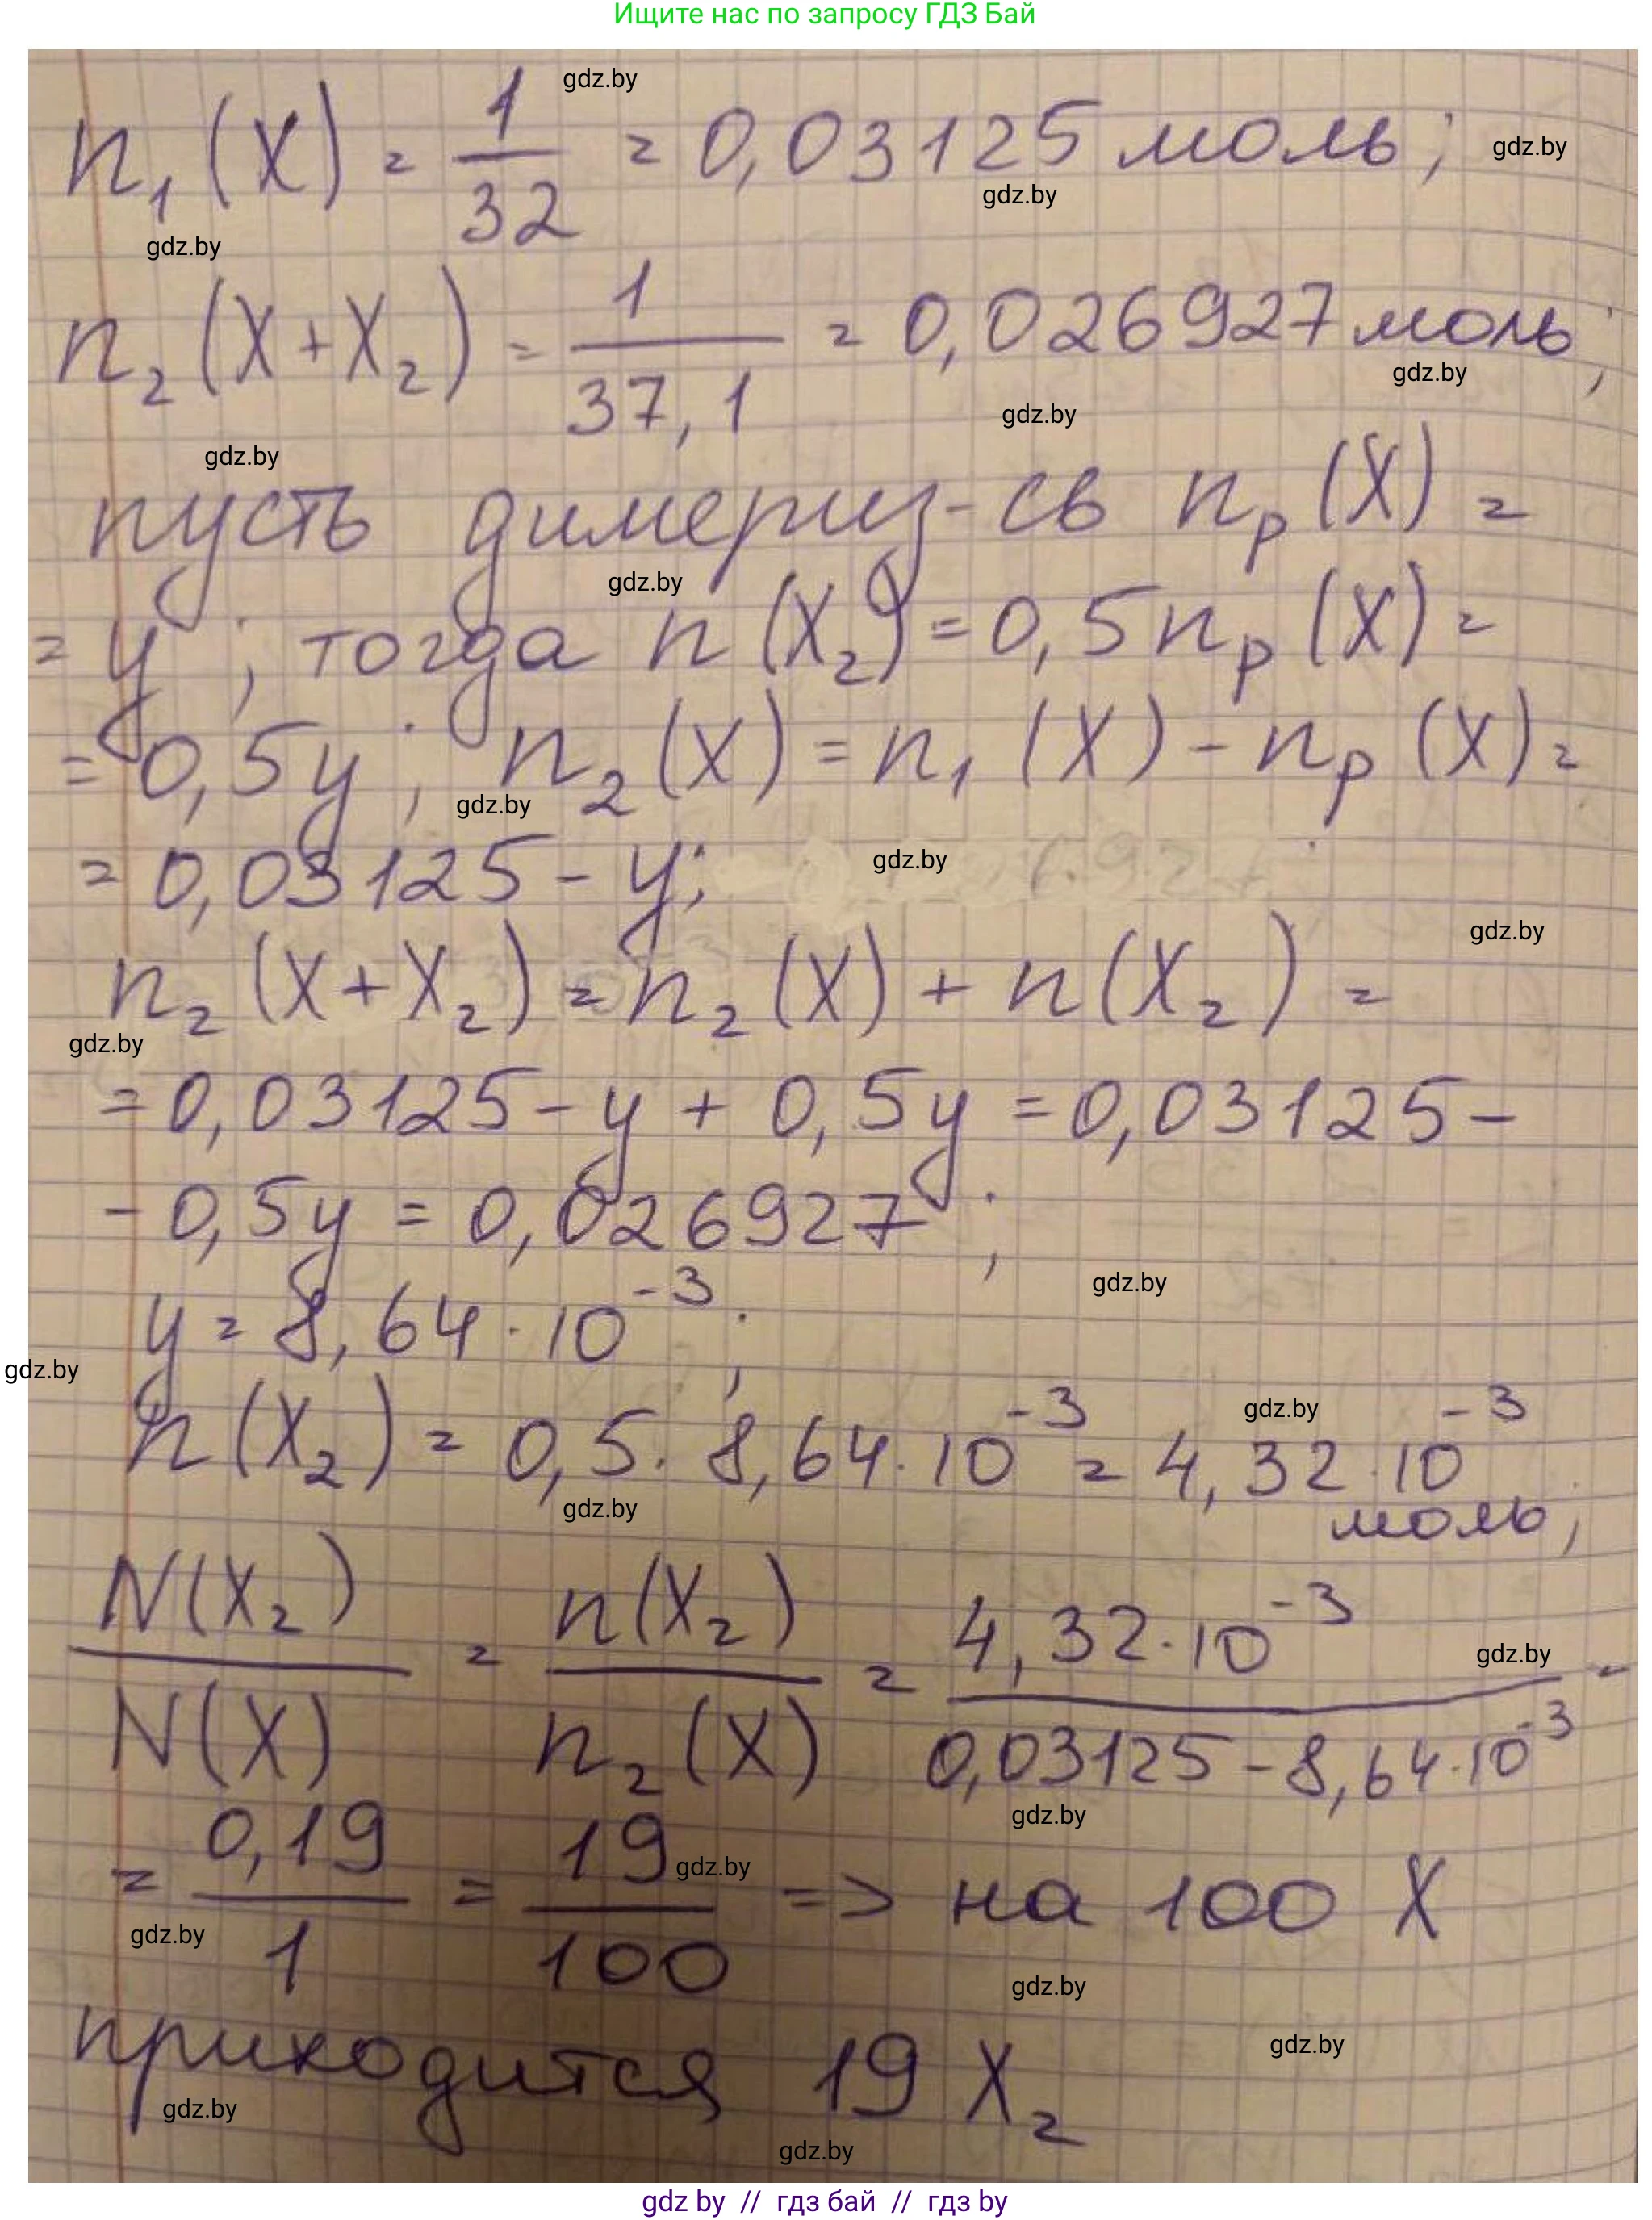 Ищите нас по запросу ГДЗ Бай
gdz.by
n₁(X) = 1/32 = 0,03125 моль;
gdz.by
gdz.by
gdz.by
n₂(X+X₂) = 1/37,1 = 0,026927 моль;
gdz.by
gdz.by
gdz.by
пусть димериз-св nₚ(X) =
gdz.by
= y; тогда n(X₂) = 0,5nₚ(X) =
= 0,5y; n₂(X) = n₁(X) - nₚ(X) =
gdz.by
= 0,03125 - y;
gdz.by
gdz.by
n₂(X+X₂) = n₂(X) + n(X₂) =
gdz.by
= 0,03125 - y + 0,5y = 0,03125 -
- 0,5y = 0,026927;
gdz.by
y = 8,64·10⁻³;
gdz.by
gdz.by
n(X₂) = 0,5·8,64·10⁻³ = 4,32·10⁻³
gdz.by
моль;
N(X₂)/N(X) = n(X₂)/n₂(X) = 4,32·10⁻³/0,03125 - 8,64·10⁻³ =
gdz.by
gdz.by
= 0,19/1 = 19/100 => на 100 X
gdz.by
gdz.by
gdz.by
приходится 19 X₂
gdz.by
gdz.by
gdz.by
gdz by // гдз бай // гдз by